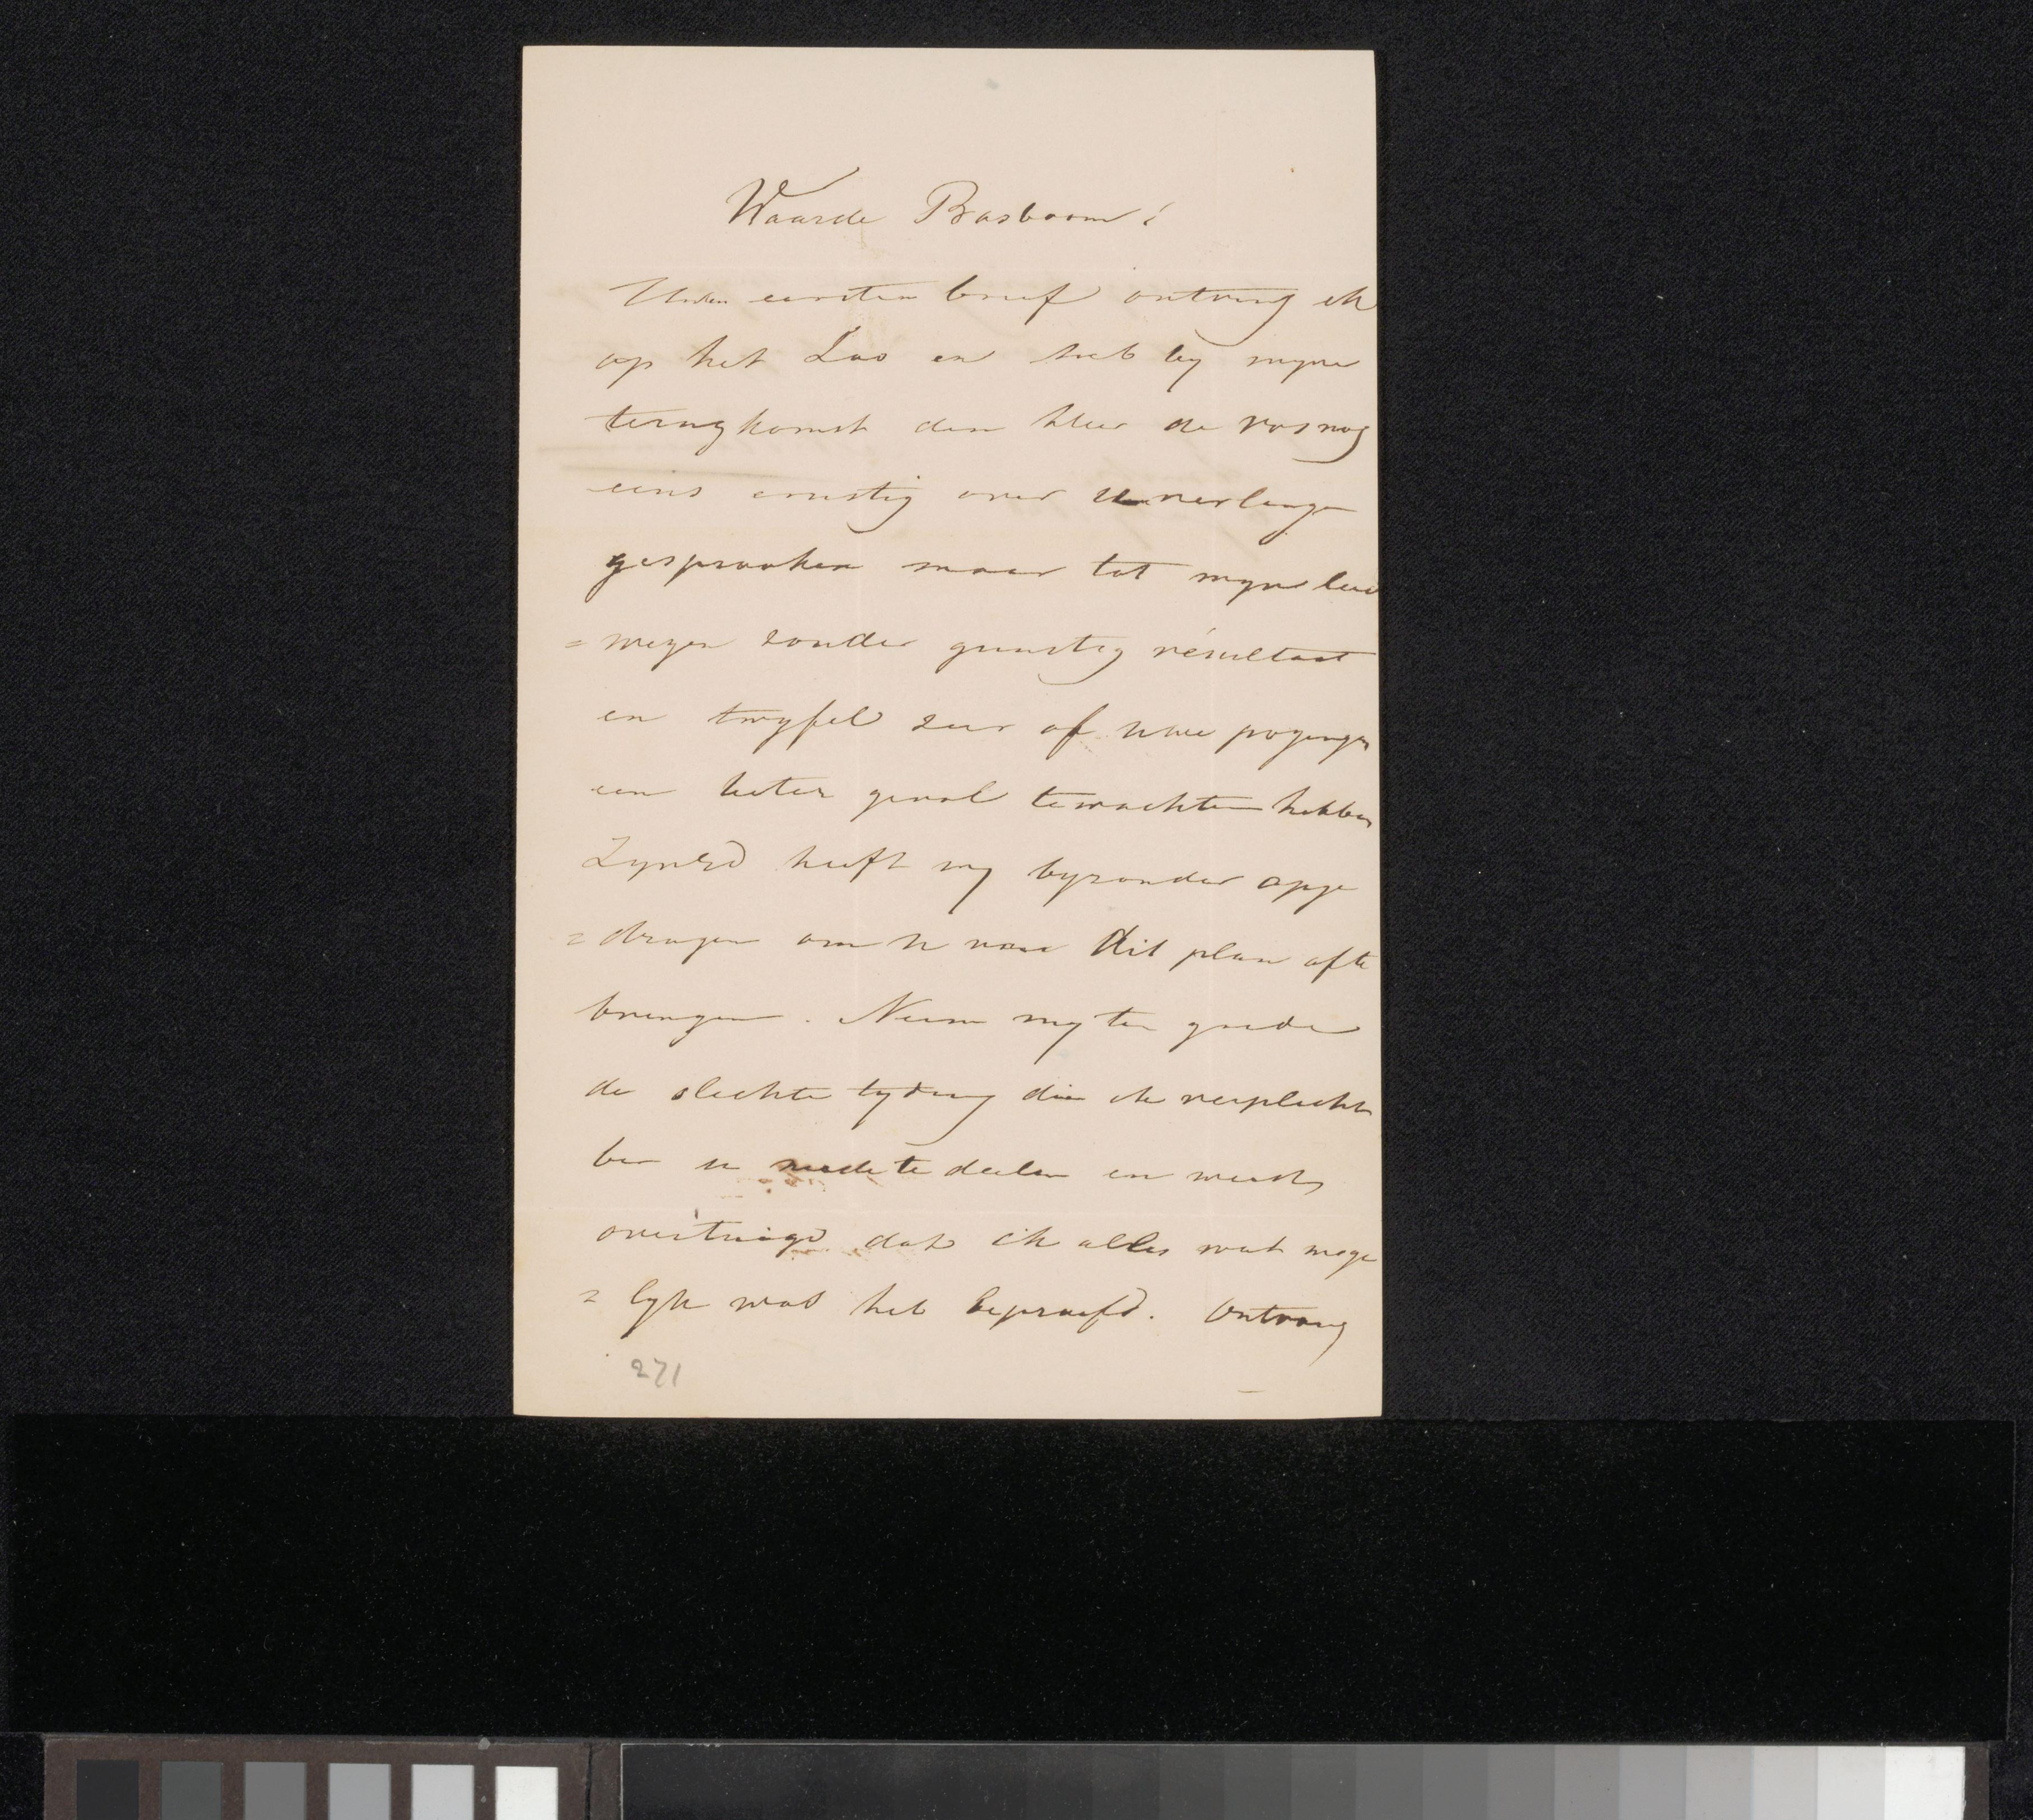 Waarde Bosboom!
Uwen eersten brief ontving ik
op het Loo en heb by myne
terugkomst den Heer de Vos nog
eens ernstig over U verlangen
gesprooken maar tot myn leed
= wezen zonder gunstig résultaat
en twyfel zeer of uwe pogingen
een beter gevol te wachten hebben
ZynEd heeft my byzonder opge
= dragen om U van dit plan afte
brengen. Neem my ten goede
de slechte tyding die ik verplicht
ben u mede te deelen en weest
overtuigd dat ik alles wat moge
= lyk was heb beproefd. Ontvang
271